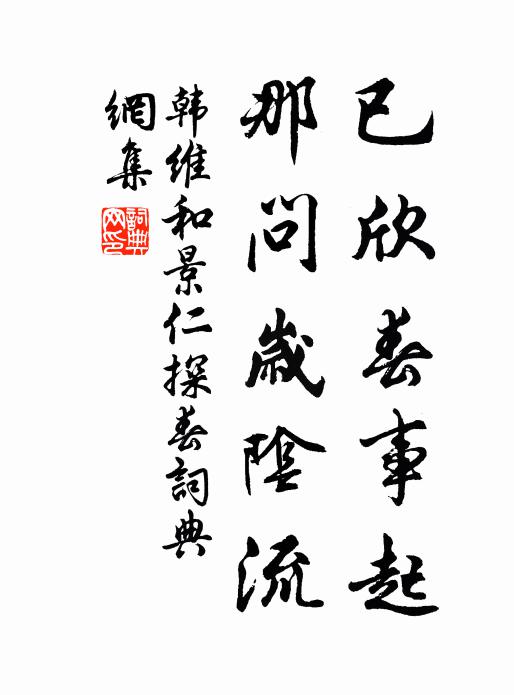 已欣春事起
那問歲陰流
韩維和景仁探春詞典
網集
詞典網印